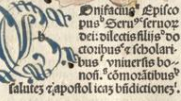 Bonifacius Episco
pus Seruꝰ seruoꝝ
dei: dilectis filijs do
ctoribus ⁊ scholari
bus vniuersis bo
nosi. cōmorātibus
salutez ⁊ apostolicaz bn̄dictionez.